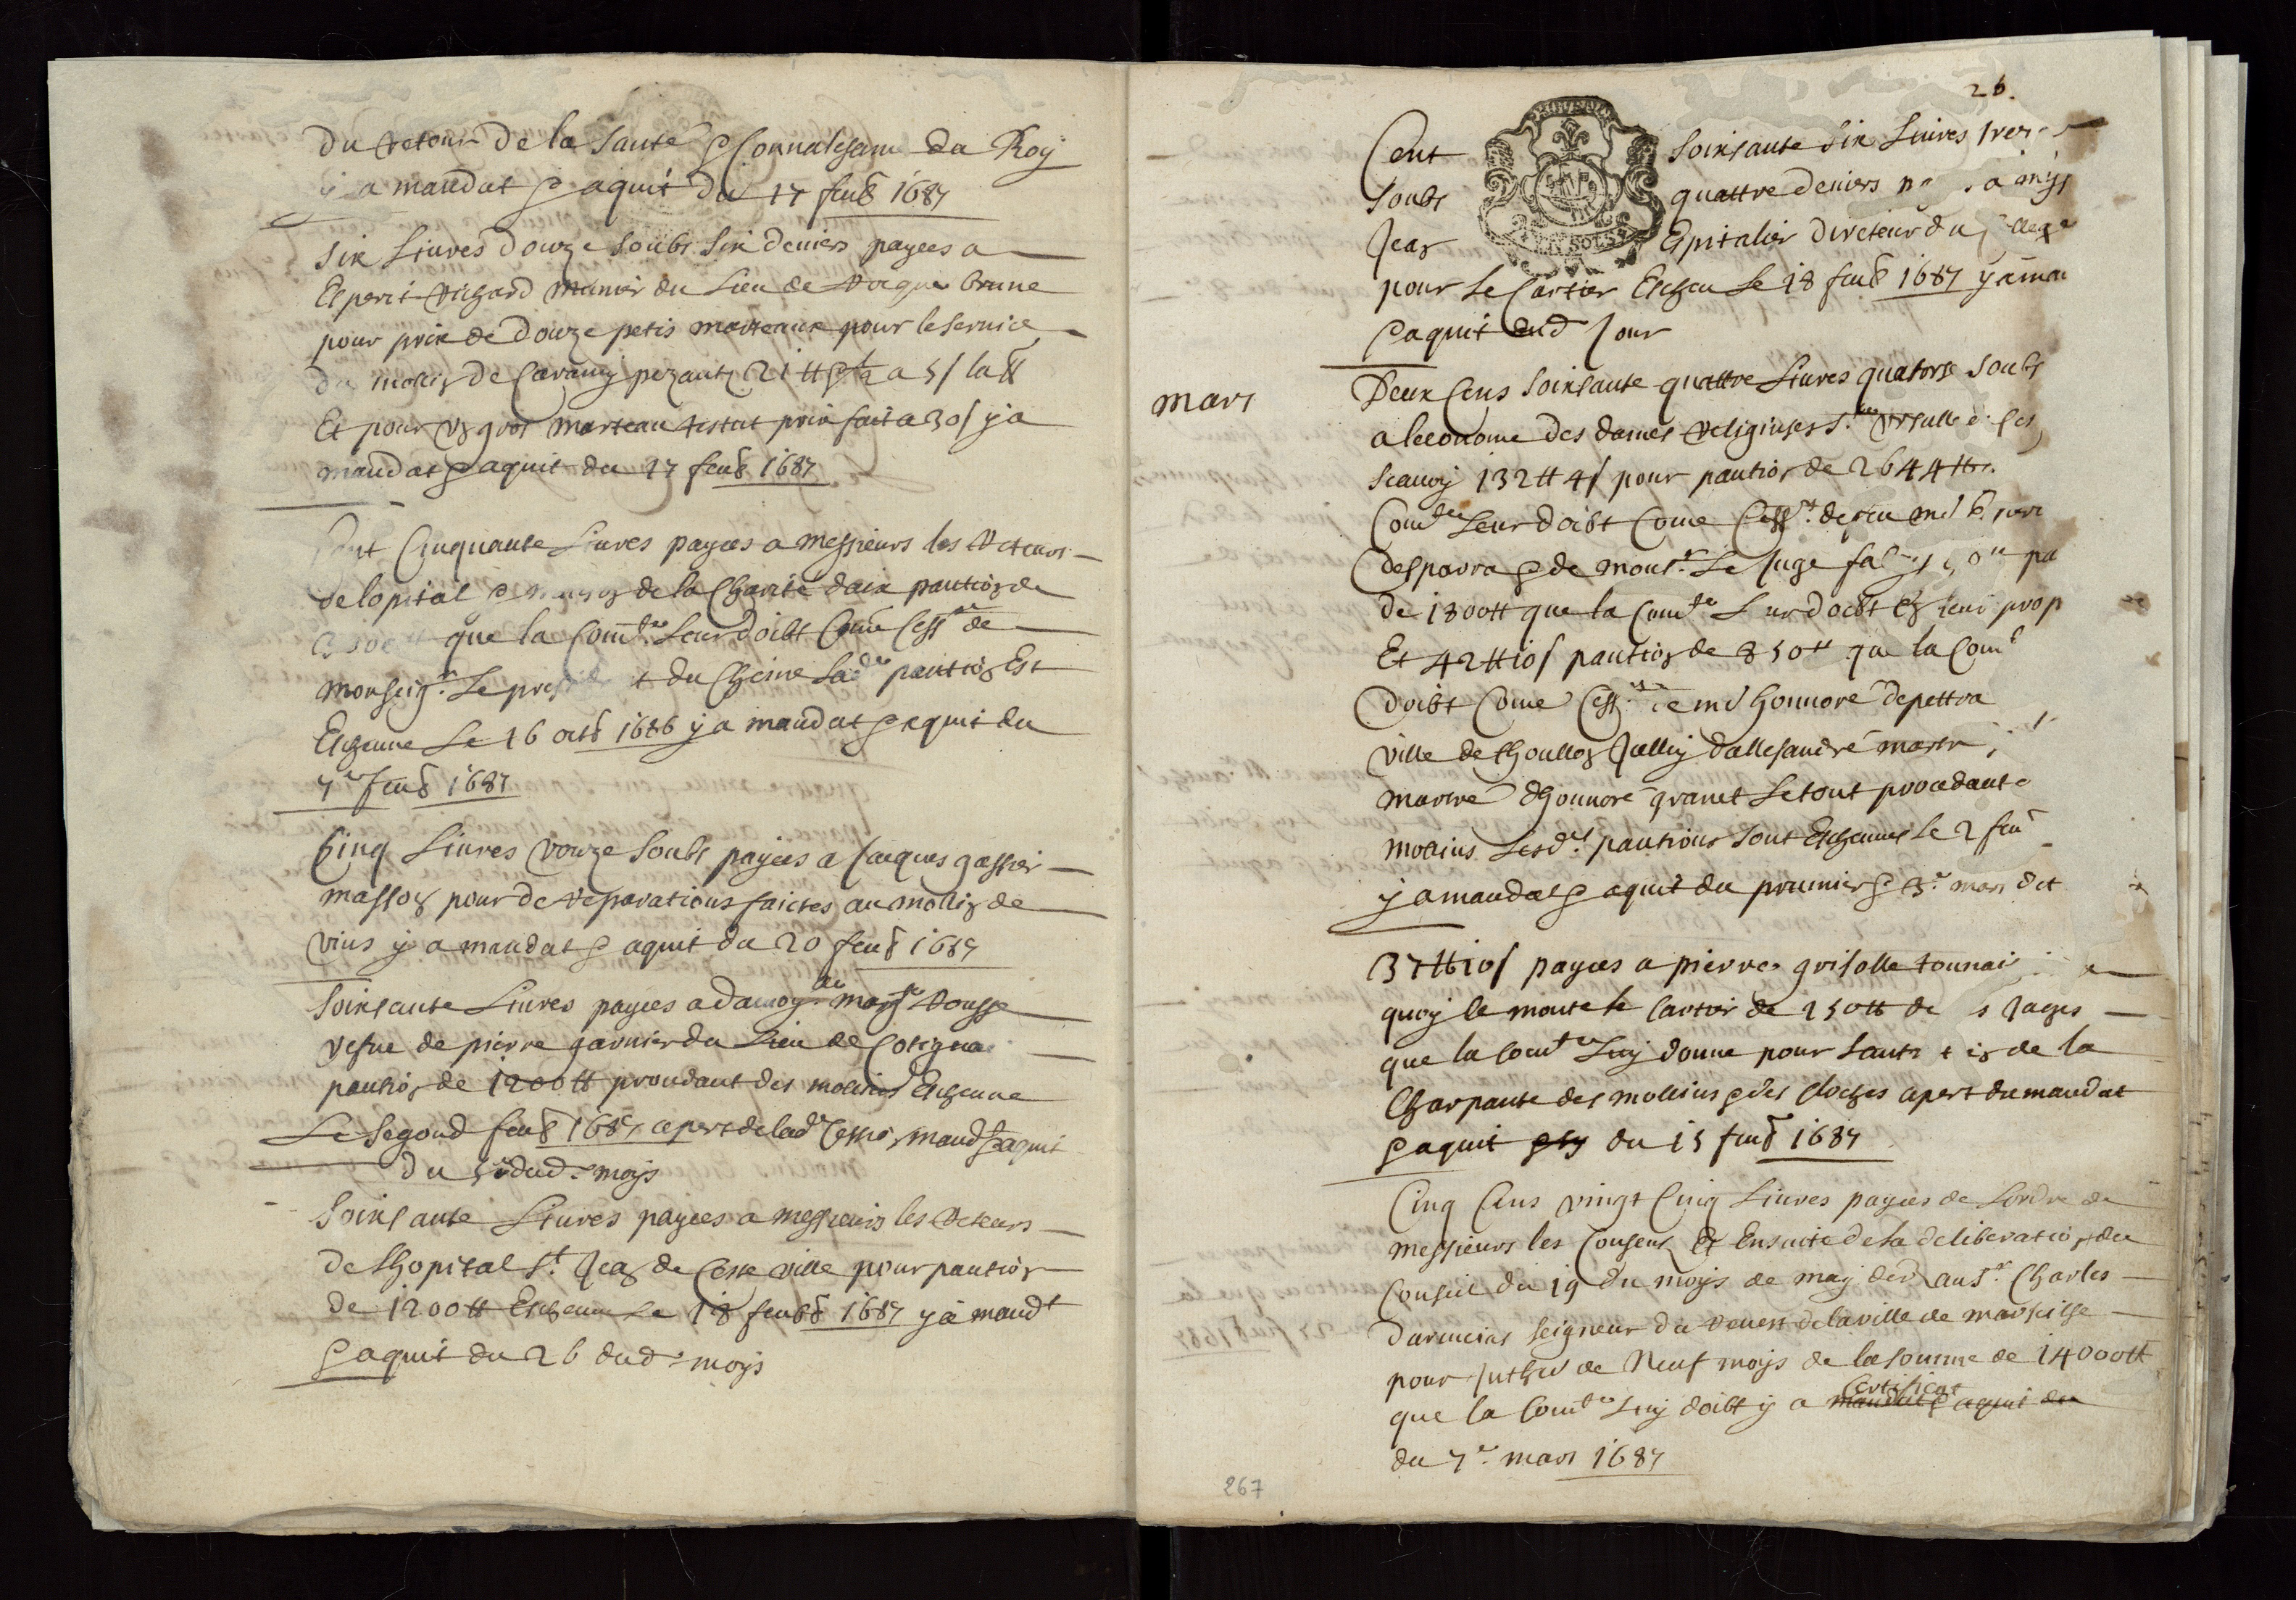 du retour de la santé & Connalesance du Roy
y a mandat & aquit du 17 feub 1687
six Liures douze soubs six deniers payees a
Esperit Richard munier du Lieu de Roque brune
pour prix de douze petis marteaux pour le seruice
du molin de Caramy pezantz 21 tt & 1/2 a 5 s la tt
Et pour un gros marteau testut prix fait a 30 s y a
mandat & aquit du 17 feub 1687
Cent Cinquante Liures payees a messieurs les Reteurs
de lopital & de la Charité daix pantion de
que la Comte Leur doibt Come Cessre de
monseigr Le president du Cheine Lade pantion Est
Escheue Le 16 octb 1686 y a mandat & aquit du
7e feub 1687
Cinq Liures douze soubs payees a Jacques gassier
masson pour de reparations faictes au molin de
vins y a mandat & aquit du 20 feub 1687
soixsante Liures payees a damoyle Rousse
vefue de pierre garnier du Lieu de Cotignac
pantion de 1200 tt procedant des molins Escheue
Le segond feub 1687 apert de lade Cession mandt & aquit
du dud moys
soixsante Liures payees a messieurs les Reteurs
de lhopital St Jean de Ceste ville pour pantion
de 1200 tt Escheue Le 18 feub 1687 y a mandt
& aquit du 26 dud moys
26.
Cent soixsante six Liures
soubs quattre deniers
Jean Epitalier directeur du
pour Le Cartier Escheu Le 18 feub 1687 y a
& aquit dud Jour
mars
Deux Cens soixsante quattre Liures quatorse soubs
a leconome des dames religiuses Ste Ursulle
scauoy 132 tt 4 s pour pantion de 2644 tt
Comte Leur doibt Come Cessre
desparra & de monsr Le Juge
de 1300 tt que la Comte Leur doibt En leur
Et 42 tt 10 s pantion de 850 tt que la Comte
doibt Come Cessre de mr honnoré depettra
ville de thoullon dallesandré
honnoré granet Le tout procedant
molins Lesdes pantions sont Escheues le 2 feu
y a mandat & aquit du prumier & 3e mars
37 tt 10 s payees a pierre grisolle
quoy le monte le Cartier de 150 tt de gages
que la Comte Luy donne pour de la
Charpante des molins & des cloches apert du mandat
& aquit du 15 feub 1687
Cinq Cens vingt Cinq Liures payees de Lordre de
messieurs les Consens Et Ensuite de la deliberation du
Conseil du 19 du moys de may der au sr Charles
seigneur du Reuest de la ville de marseille
pour Jnthre de Neuf moys de la somme de 14000 tt
Certificat
que la Comte Luy doibt y a mandat & aquit du
du 7e mars 1687
267